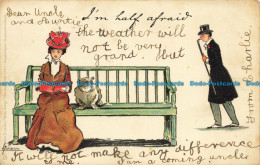 Dear Uncle
and Auntie
I'm half afraid
the weather will
not be very
grand. But
From Charlie
It will not make any difference
I am a coming uncles